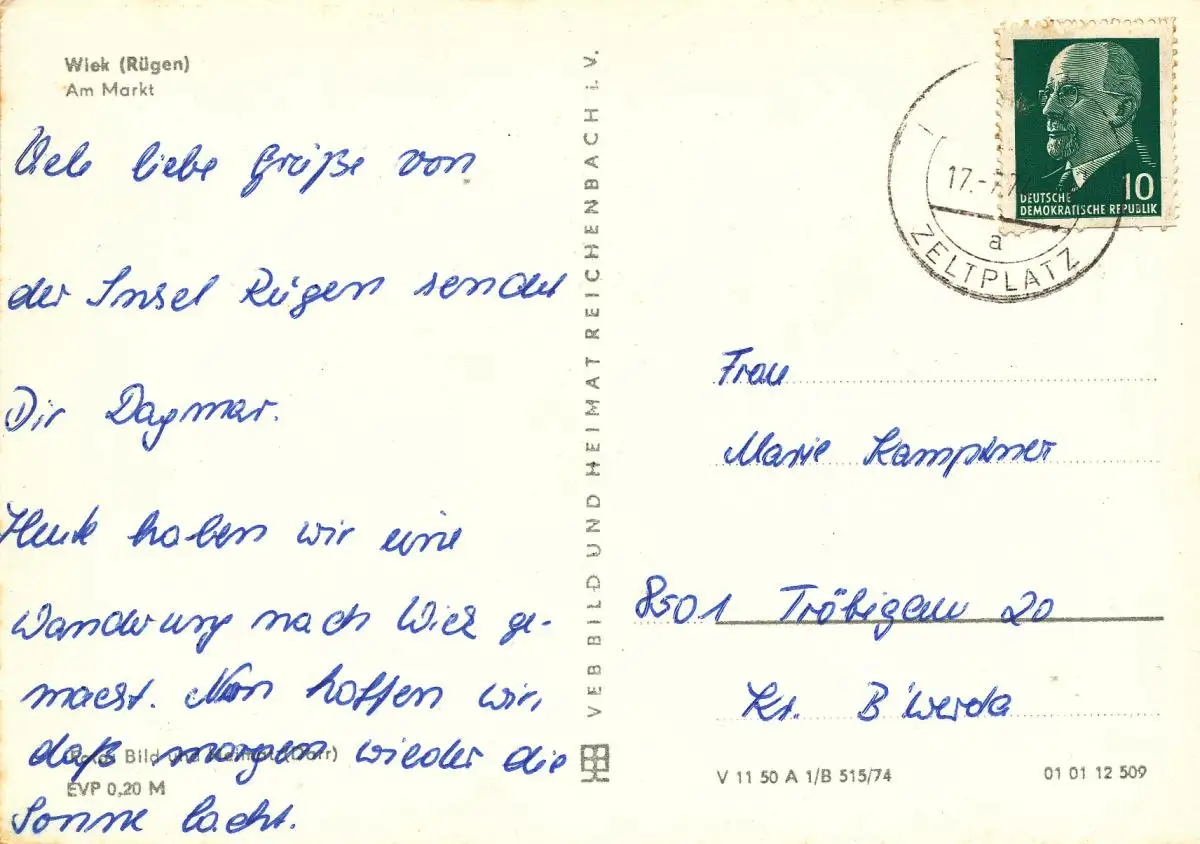 Wiek (Rügen)
Am Markt
Viele liebe Grüße von
der Insel Rügen sendet
Dir Dagmar.
Heute haben wir eine
Wanderung nach Wiek ge-
macht. Nun hoffen wir,
daß morgen wieder die
Sonne lacht.
Bild und Heimat
EVP 0,20 M
VEB BILD UND HEIMAT REICHENBACH i. V.
17.-7.7
a
ZELTPLATZ
10
DEUTSCHE
DEMOKRATISCHE REPUBLIK
Frau
Marie
8501 Tröbigau 20
Kr. B'werda
V 11 50 A 1/B 515/74
01 01 12 509